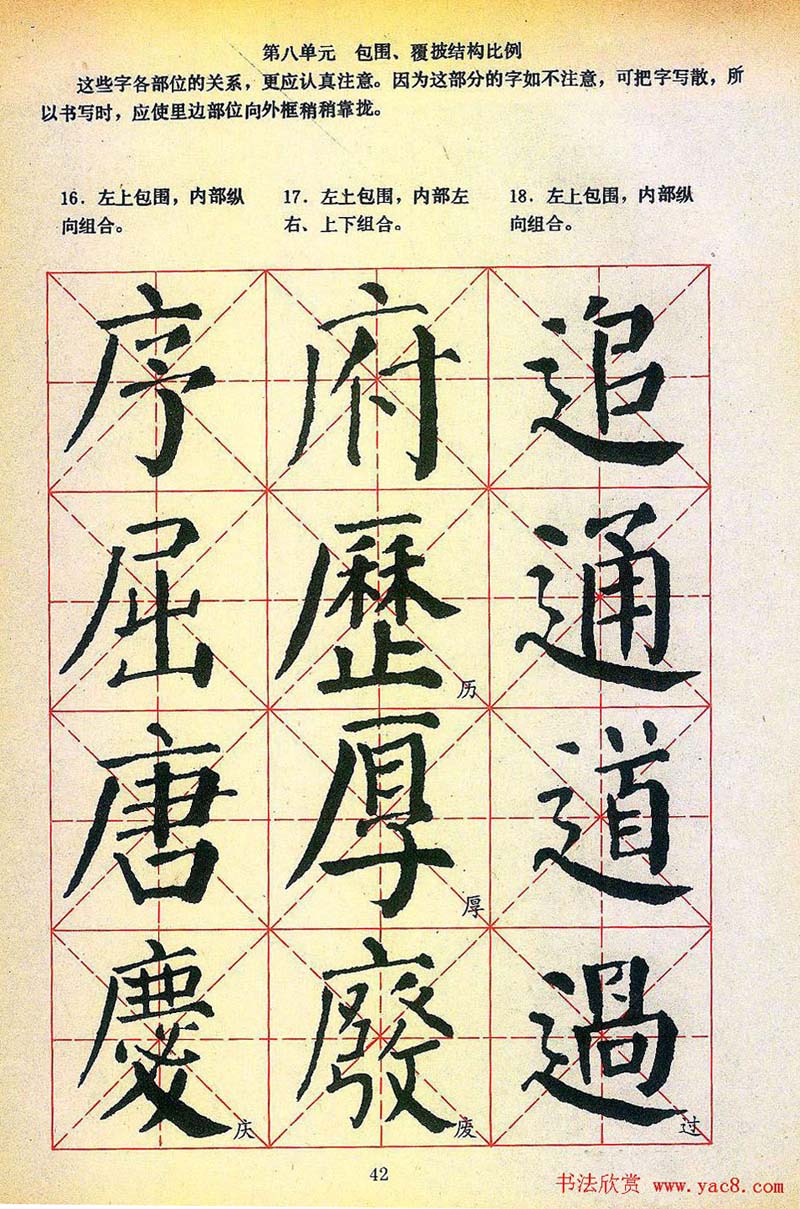 第八单元 包围、覆披结构比例
这些字各部位的关系，更应认真注意。因为这部分的字如不注意，可把字写散，所
以书写时，应使里边部位向外框稍稍靠拢。
16．左上包围，内部纵
向组合。
17．左上包围，内部左
右、上下组合。
18．左上包围，内部纵
向组合。
序 府 追
屈 歷 通
历
唐 厚 道
厚
慶 廢 過
庆 废 过
42
书法欣赏 www.yac8.com